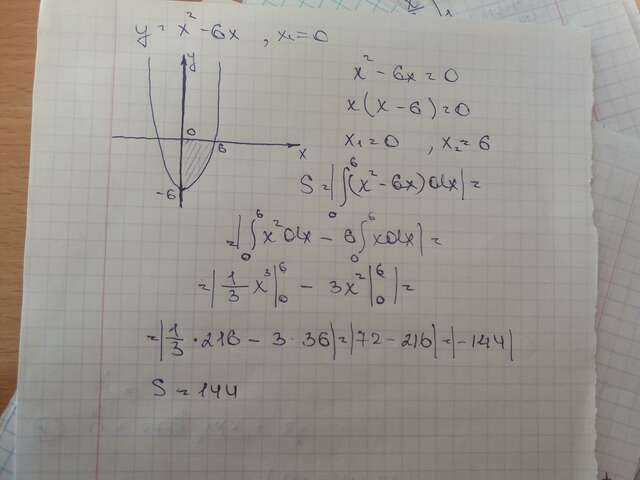 y = x² - 6x , x₁ = 0
y
0
6
x
-6
x² - 6x = 0
x(x - 6) = 0
x₁ = 0 , x₂ = 6
S = |∫₀⁶ (x² - 6x) dx| =
= |∫₀⁶ x² dx - 6 ∫₀⁶ x dx| =
= |1/3 x³|₀⁶ - 3x²|₀⁶| =
= |1/3 · 216 - 3 · 36| = |72 - 216| = |-144|
S = 144